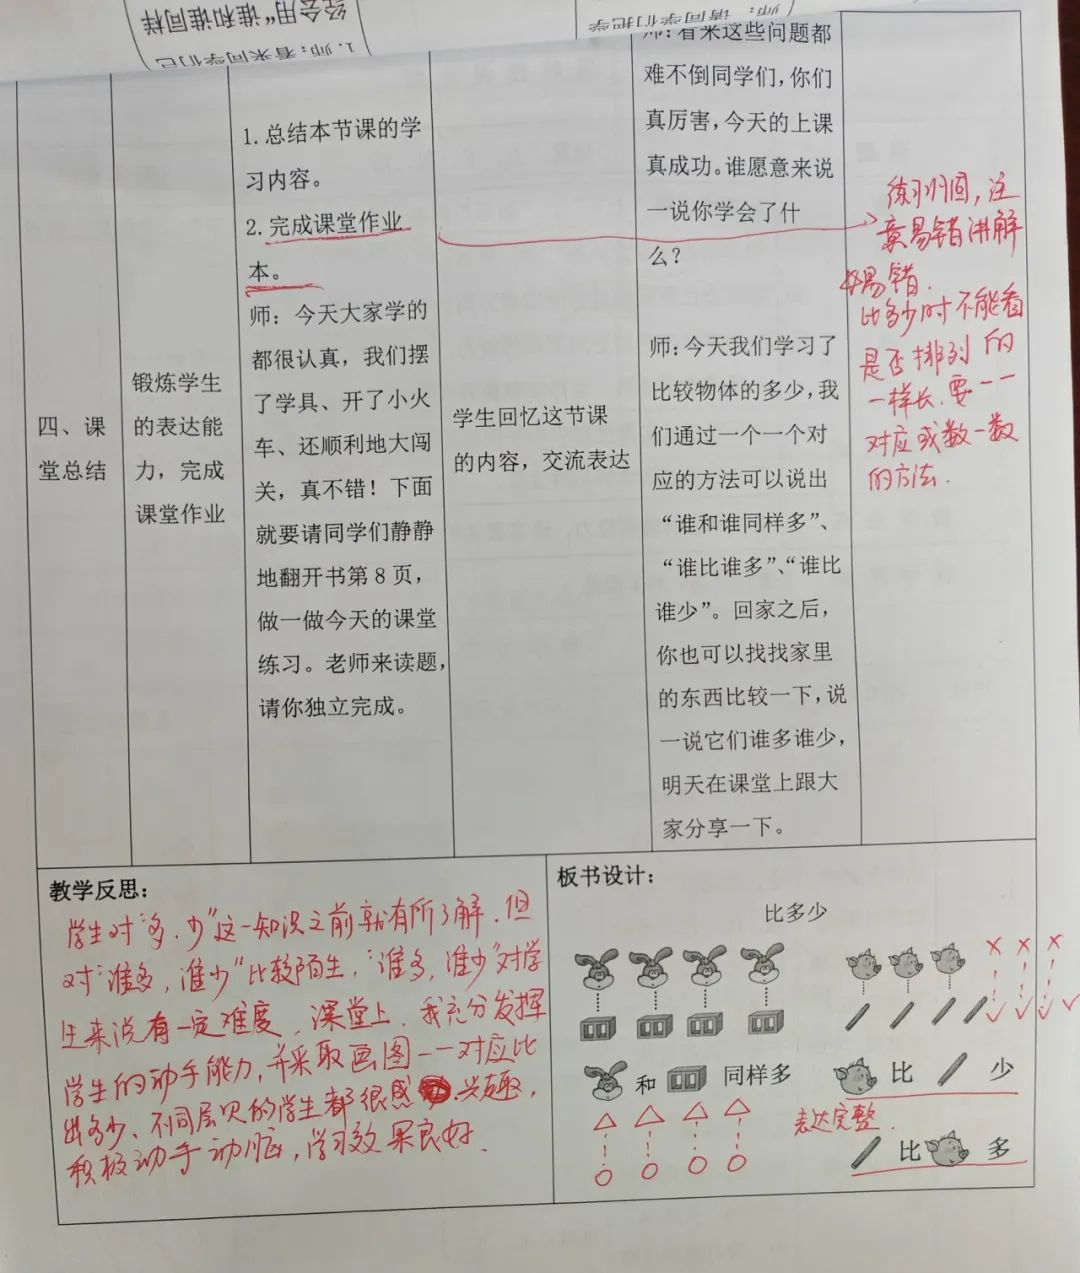 经会用“谁和谁同样
1. 师：看来同学们已
师：请同学们把学
四、课
堂总结
锻炼学生
的表达能
力，完成
课堂作业
1. 总结本节课的学
习内容。
2. 完成课堂作业
本。
师：今天大家学的
都很认真，我们摆
了学具、开了小火
车、还顺利地大闯
关，真不错！下面
就要请同学们静静
地翻开书第 8 页，
做一做今天的课堂
练习。老师来读题，
请你独立完成。
学生回忆这节课
的内容，交流表达
师：看来这些问题都
难不倒同学们，你们
真厉害，今天的上课
真成功。谁愿意来说
一说你学会了什
么？
师：今天我们学习了
比较物体的多少，我
们通过一个一个对
应的方法可以说出
“谁和谁同样多”、
“谁比谁多”、“谁比
谁少”。回家之后，
你也可以找找家里
的东西比较一下，说
一说它们谁多谁少，
明天在课堂上跟大
家分享一下。
练习巩固，注
意易错讲解
易错.
比多少时不能看
是否排列的
一样长.要一一
对应或数一数
的方法.
教学反思：
学生对“多.少”这一知识之前就有所了解.但
对“谁多，谁少”比较陌生，“谁多，谁少”对学
生来说有一定难度.课堂上.我充分发挥
学生的动手能力,并采取画图一一对应比
出多少、不同层次的学生都很感兴趣，
积极动手动脑,学习效果良好.
板书设计：
比多少
和 同样多
比 少
表达完整.
比 多